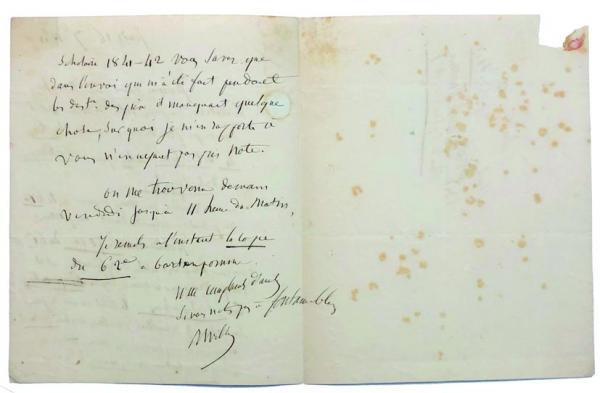 Scholaire 1841-42 vous savez que
dans l'envoi qui m'a été fait pendant
il manquait quelque
chose, sur quoi je m'en rapporte a
vous n'en ayant pas pris note.
on me trouvera demain
Vendredi jusqu'à 11 heures du Matin,
Je remets à l'instant la copie
du 6 a
Mille compliments
Si vous n'etes pas à fontainebleau